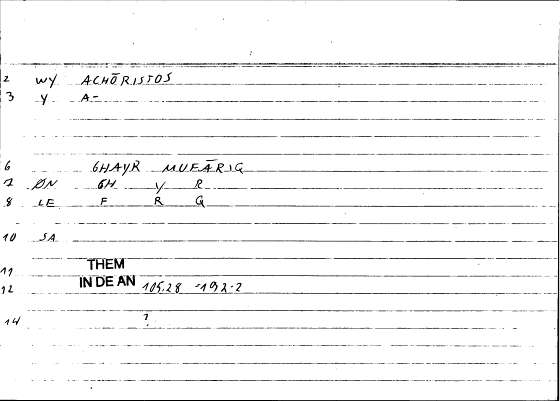 2 WY ACHŌRISTOS
3 Y A-
6 GHAYR MUFĀRIQ
7 ØN GH Y R
8 LE F R Q
10 SA
11 THEM
12 IN DE AN 105,28 -192-2
14 ?